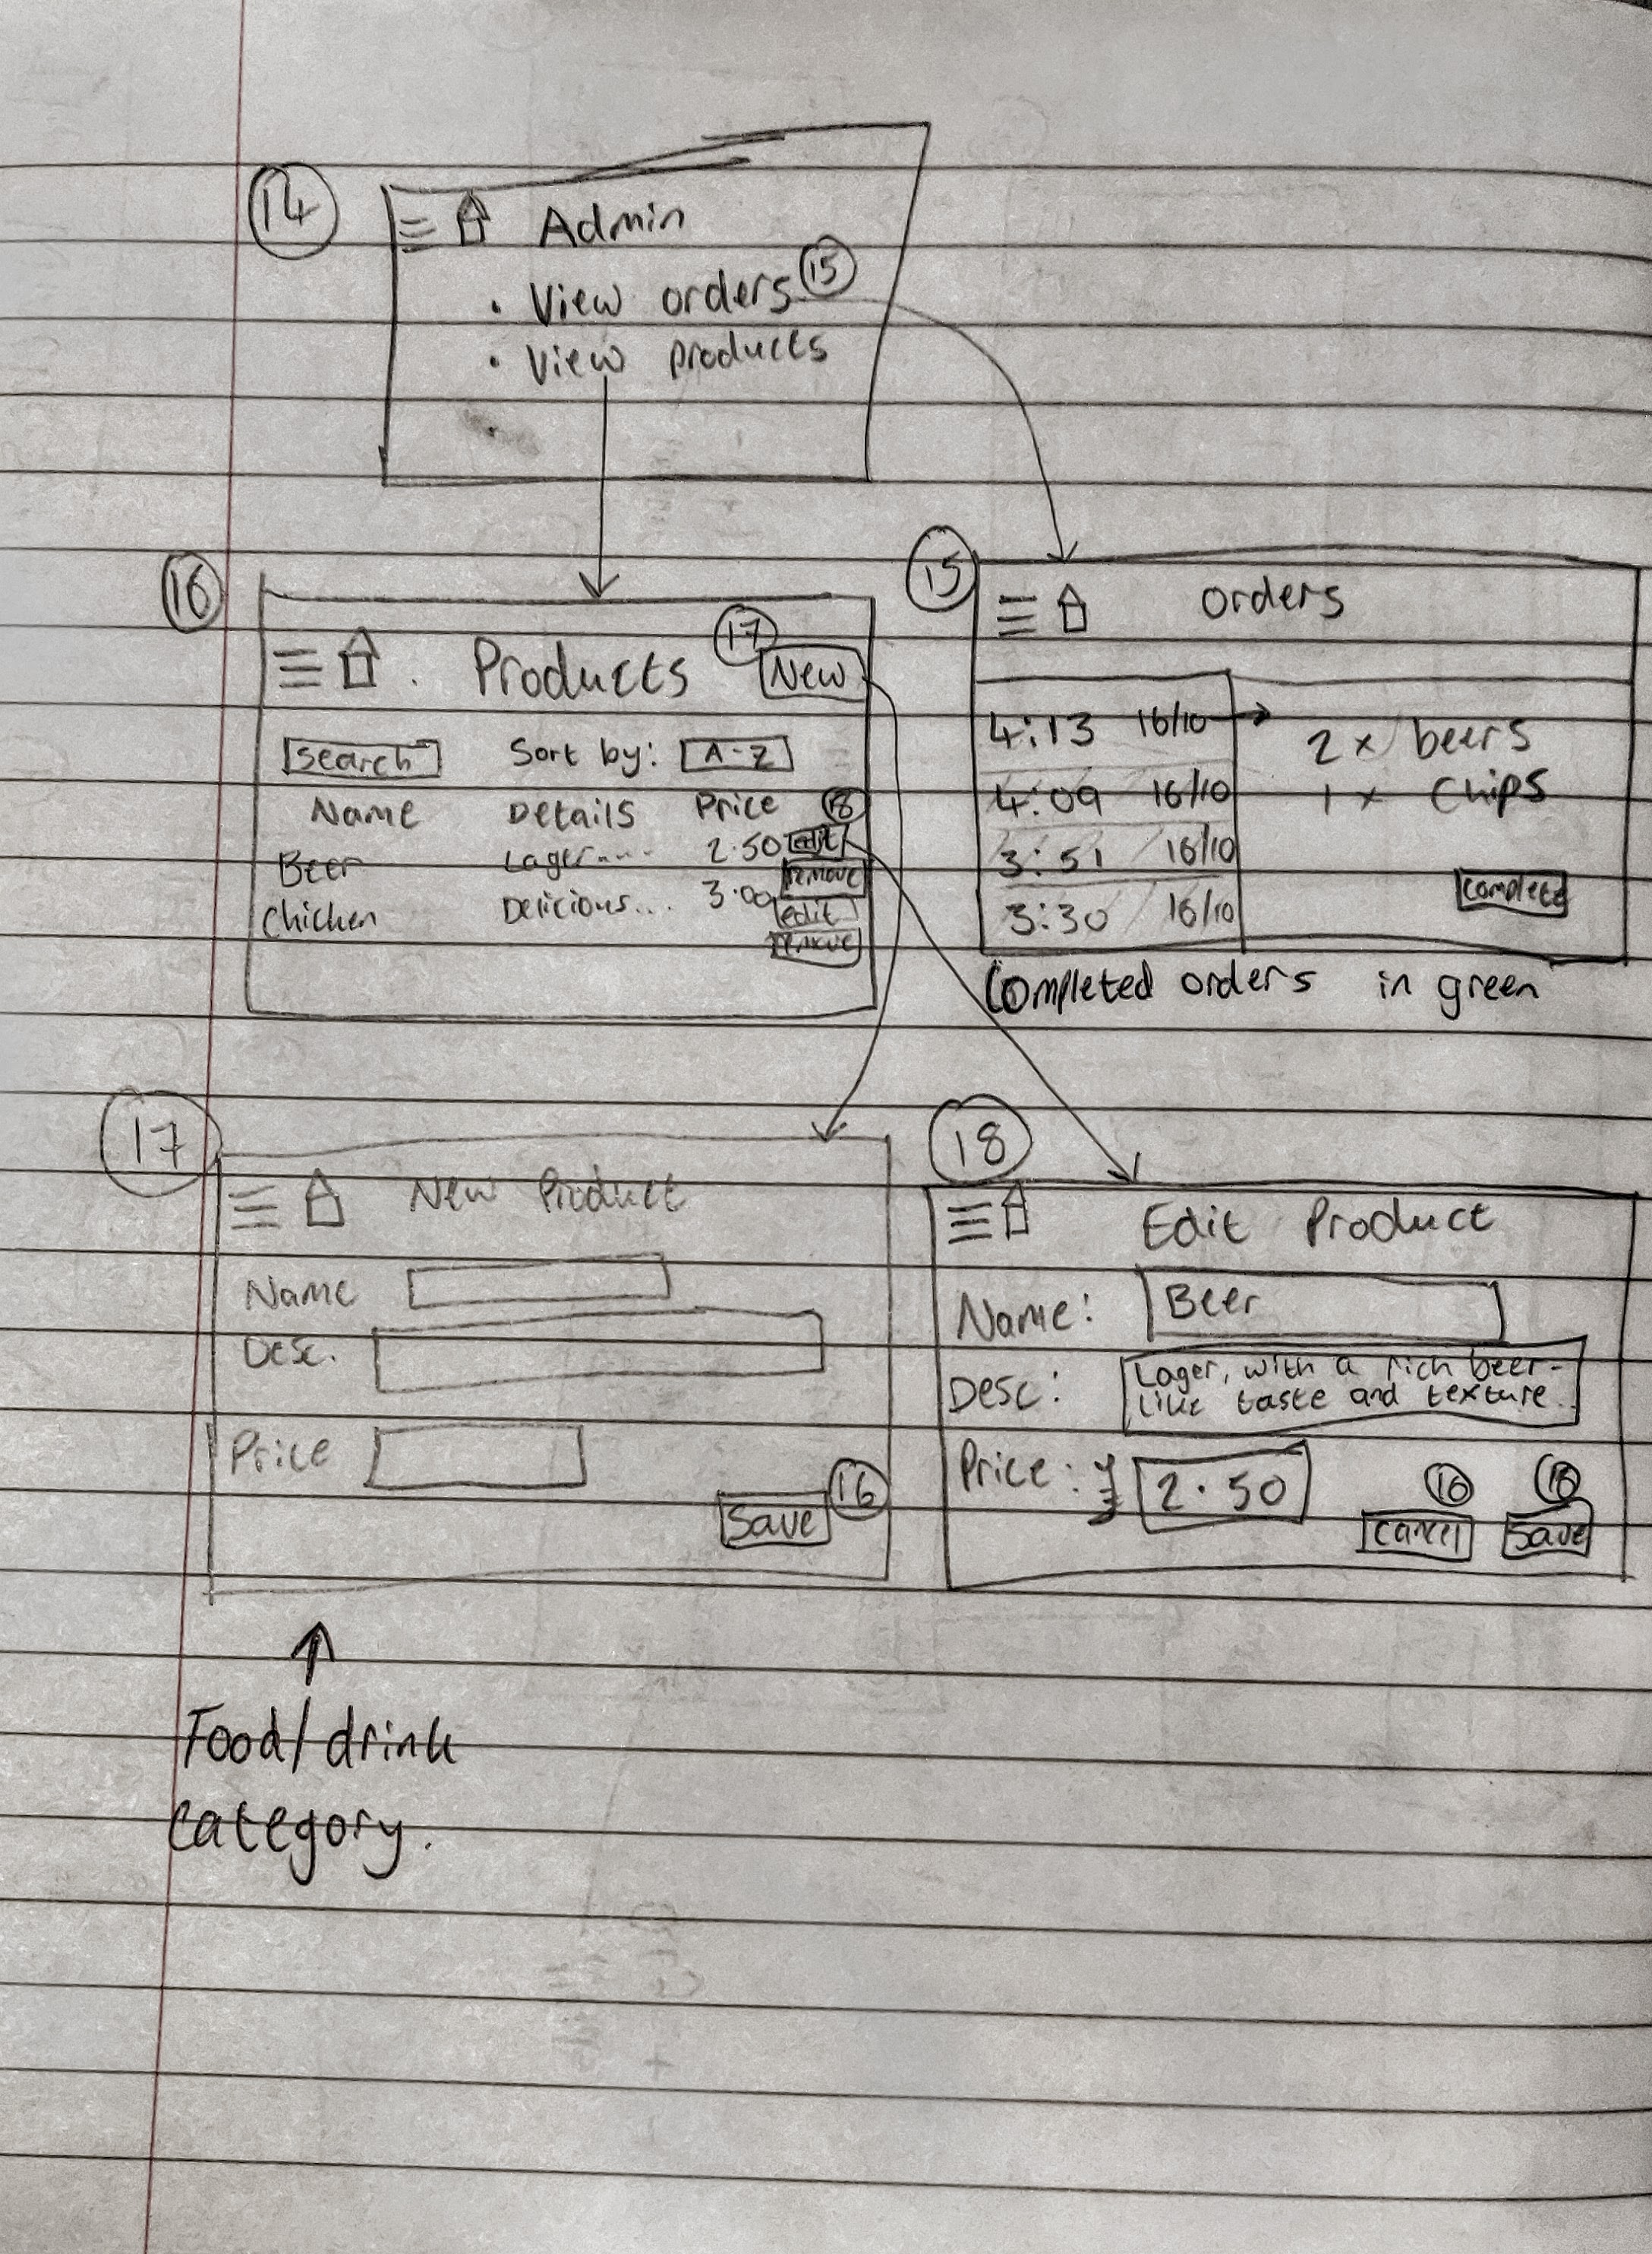 14
Admin
• View orders 15
• View products
•
16
Products 17 New
Search Sort by: A-Z
Name Details Price 18
Beer Lager.... 2.50 edit
remove
Chicken Delicious... 3.00 edit
remove
15
Orders
4:13 16/10 → 2 x beers
4:09 16/10 1 x chips
3:51 16/10
3:30 16/10 complete
Completed orders in green
17
New Product
Name
Desc.
Price
Save 16
18
Edit Product
Name: Beer
Desc: Lager, with a rich beer-
like taste and texture..
Price: 2.50
16
Cancel Save
↑
Food/drink
category.